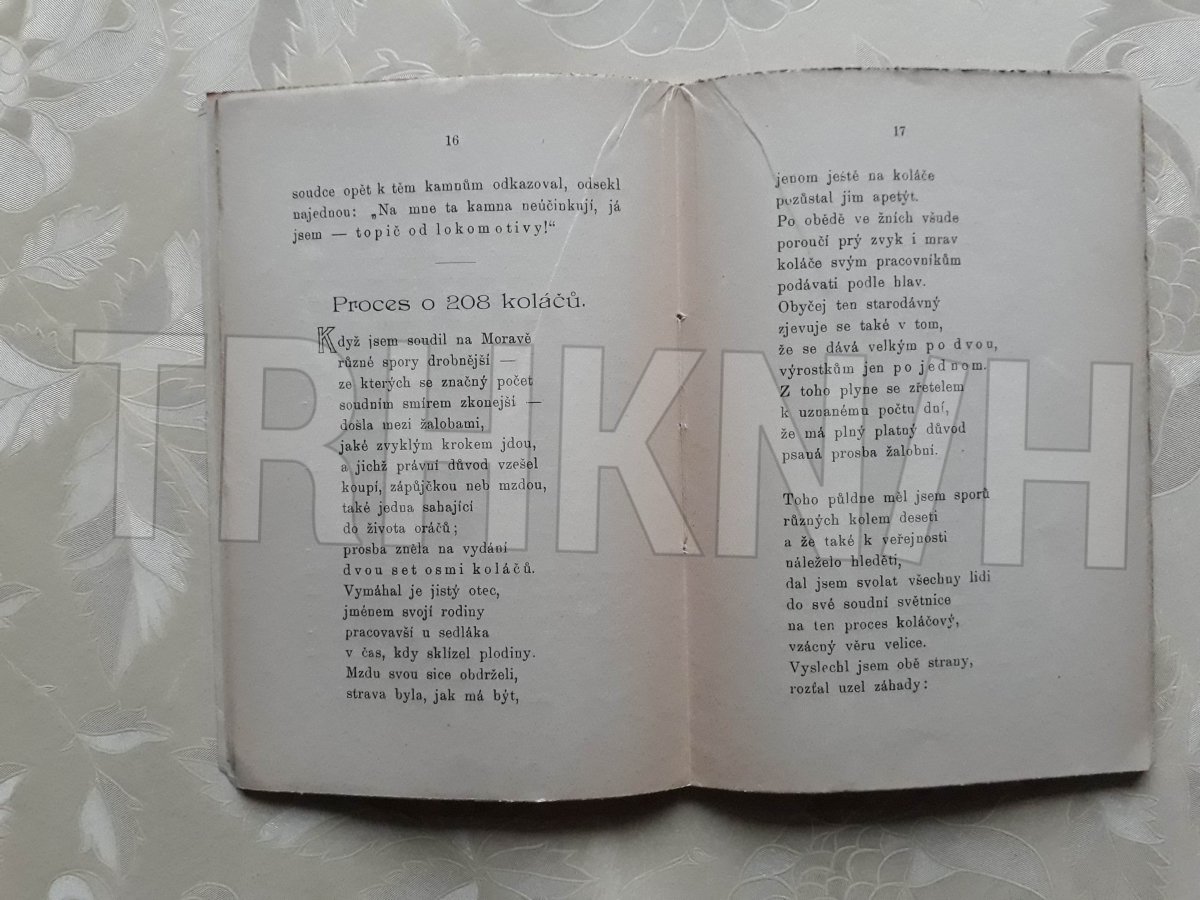 16
soudce opět k těm kamnům odkazoval, odsekl
najednou: „Na mne ta kamna neúčinkují, já
jsem — topič od lokomotivy!“
Proces o 208 koláčů.
Když jsem soudil na Moravě
různé spory drobnější —
ze kterých se značný počet
soudním smírem zkonejší —
došla mezi žalobami,
jaké zvyklým krokem jdou,
a jichž právní důvod vzešel
koupí, zápůjčkou neb mzdou,
také jedna sahající
do života oráčů;
prosba zněla na vydání
dvou set osmi koláčů.
Vymáhal je jistý otec,
jménem svojí rodiny
pracovavší u sedláka
v čas, kdy sklízel plodiny.
Mzdu svou sice obdrželi,
strava byla, jak má být,
17
jenom ještě na koláče
pozůstal jim apetýt.
Po obědě ve žních všude
poroučí prý zvyk i mrav
koláče svým pracovníkům
podávati podle hlav.
Obyčej ten starodávný
zjevuje se také v tom,
že se dává velkým po dvou,
výrostkům jen po jednom.
Z toho plyne se zřetelem
k uznanému počtu dní,
že má plný platný důvod
psaná prosba žalobní.
Toho půldne měl jsem sporů
různých kolem deseti
a že také k veřejnosti
náleželo hleděti,
dal jsem svolat všechny lidi
do své soudní světnice
na ten proces koláčový,
vzácný věru velice.
Vyslechl jsem obě strany,
rozťal uzel záhady:
TRHKNIH